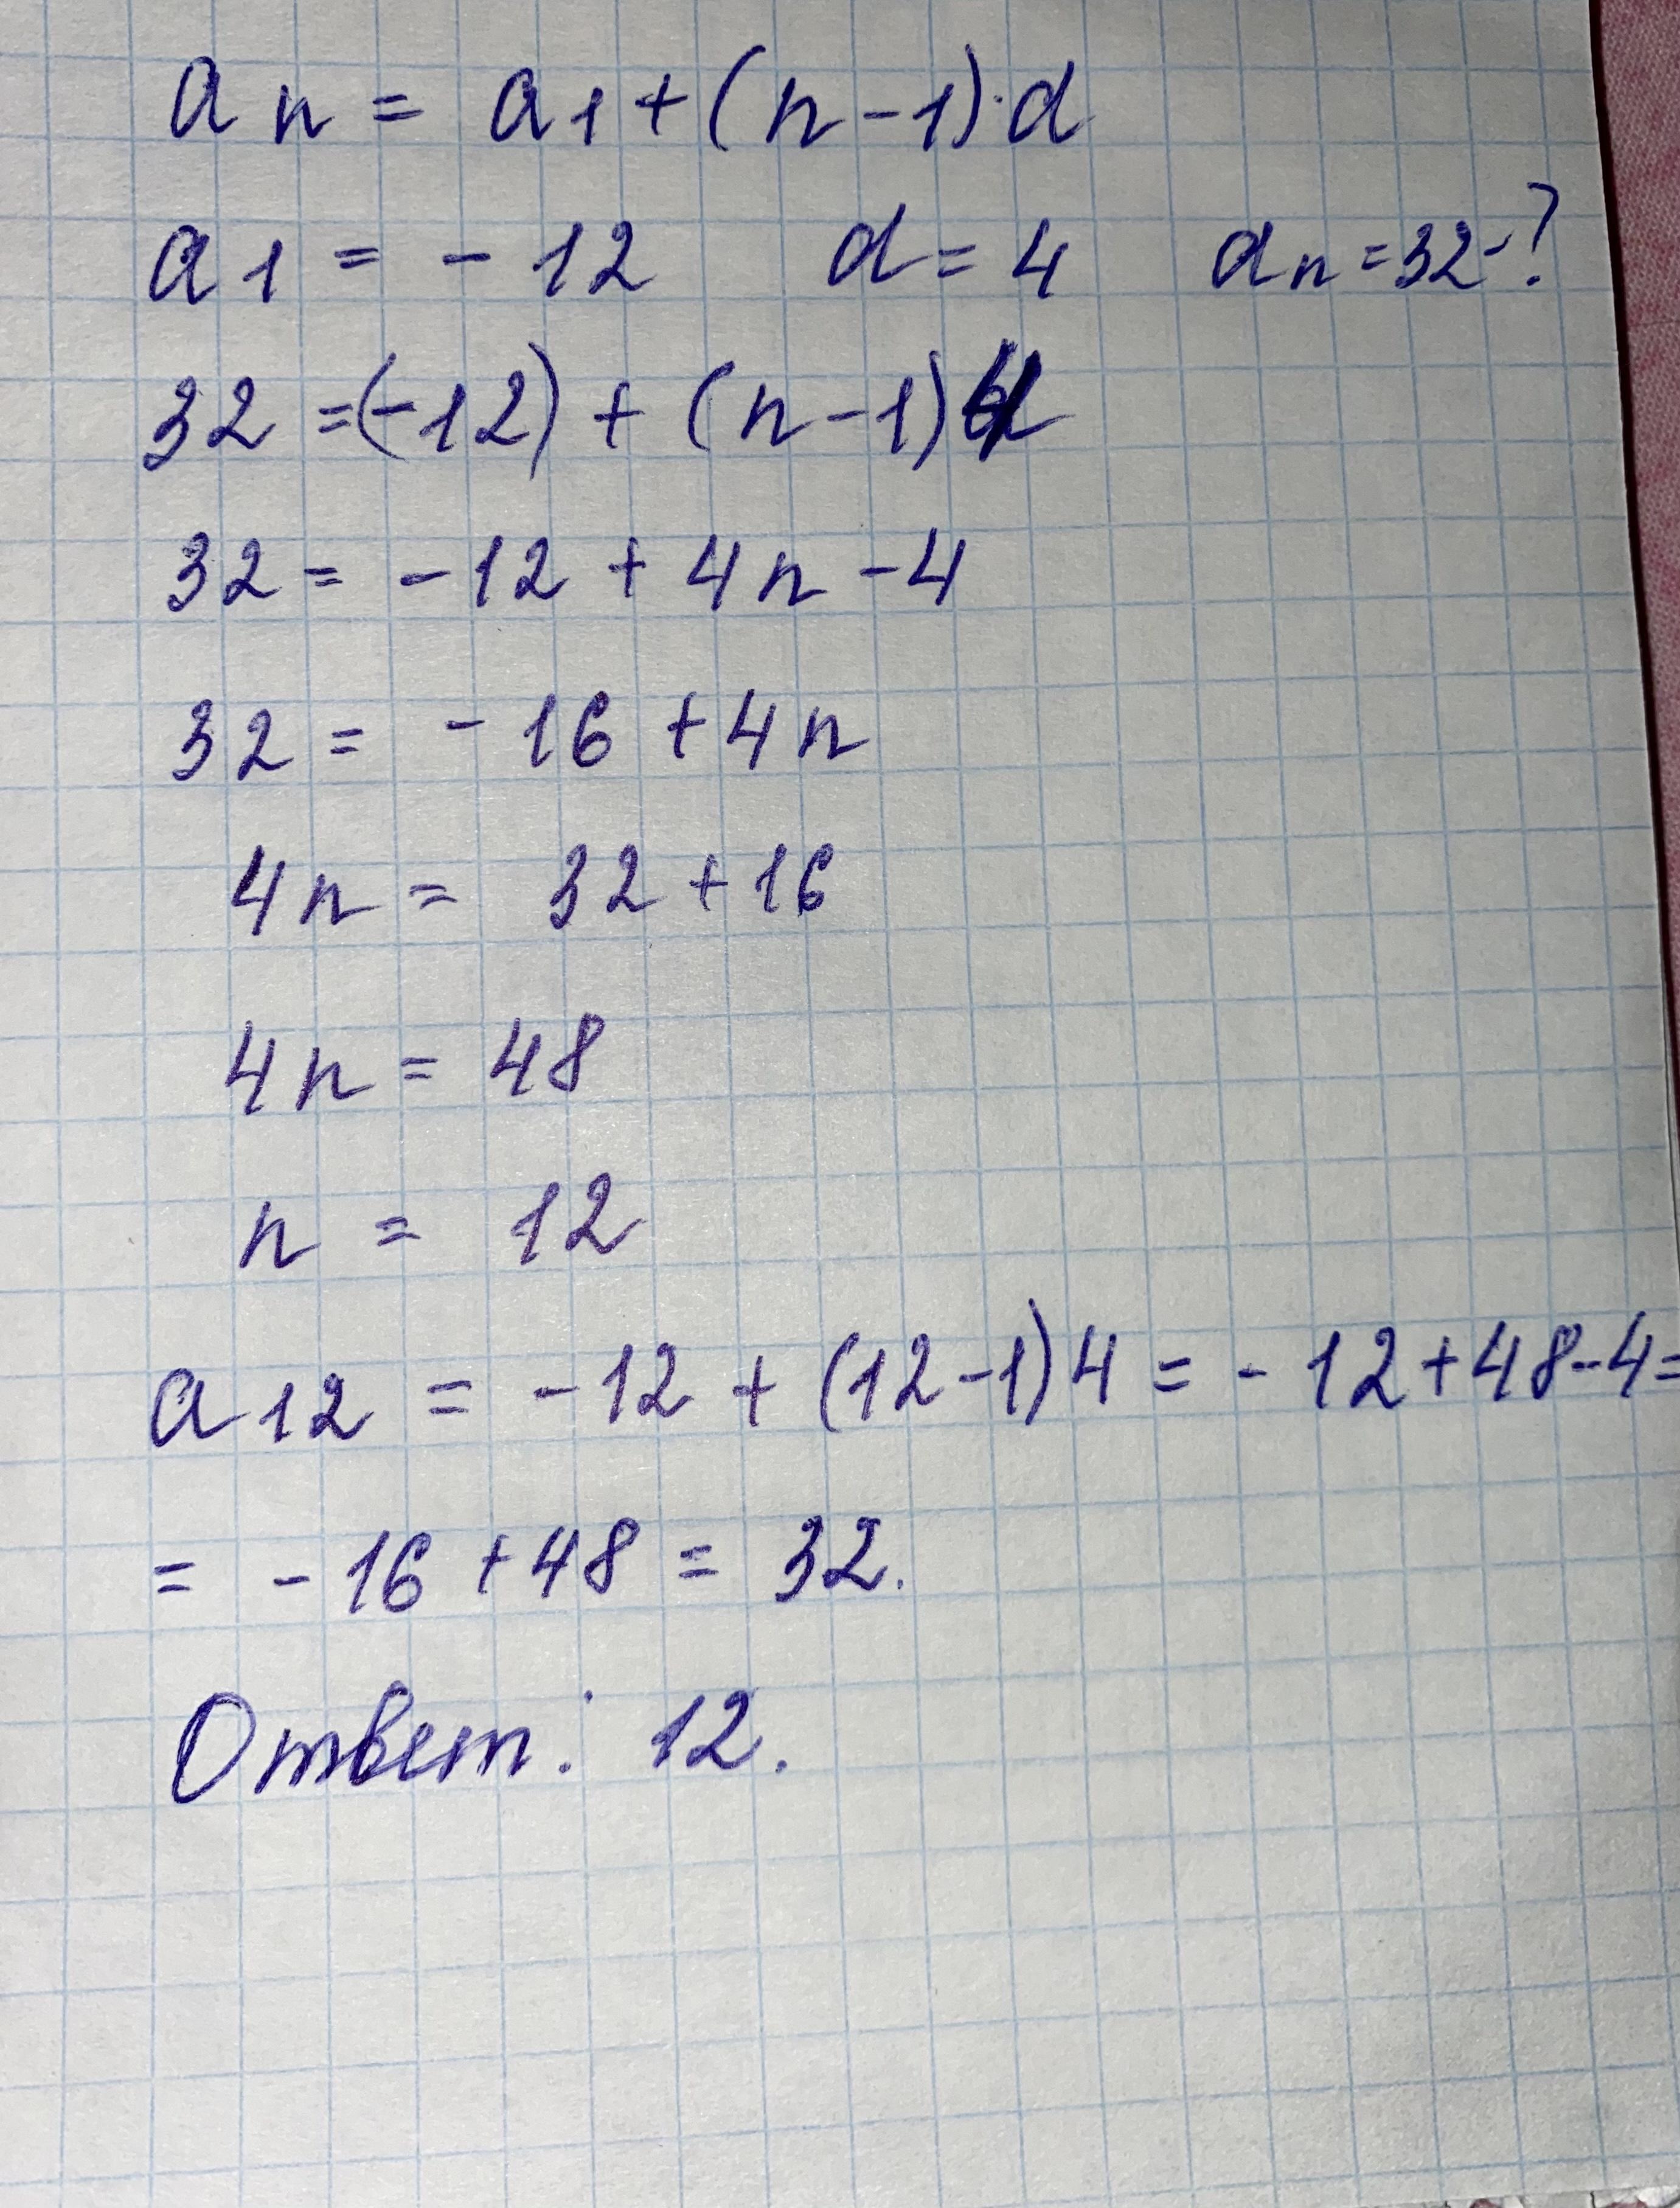 an = a1 + (n - 1)·d
a1 = - 12 d = 4 an = 32 - ?
32 = (-12) + (n - 1)4
32 = - 12 + 4n - 4
32 = - 16 + 4n
4n = 32 + 16
4n = 48
n = 12
a12 = - 12 + (12 - 1)4 = - 12 + 48 - 4 =
= - 16 + 48 = 32.
Ответ: 12.